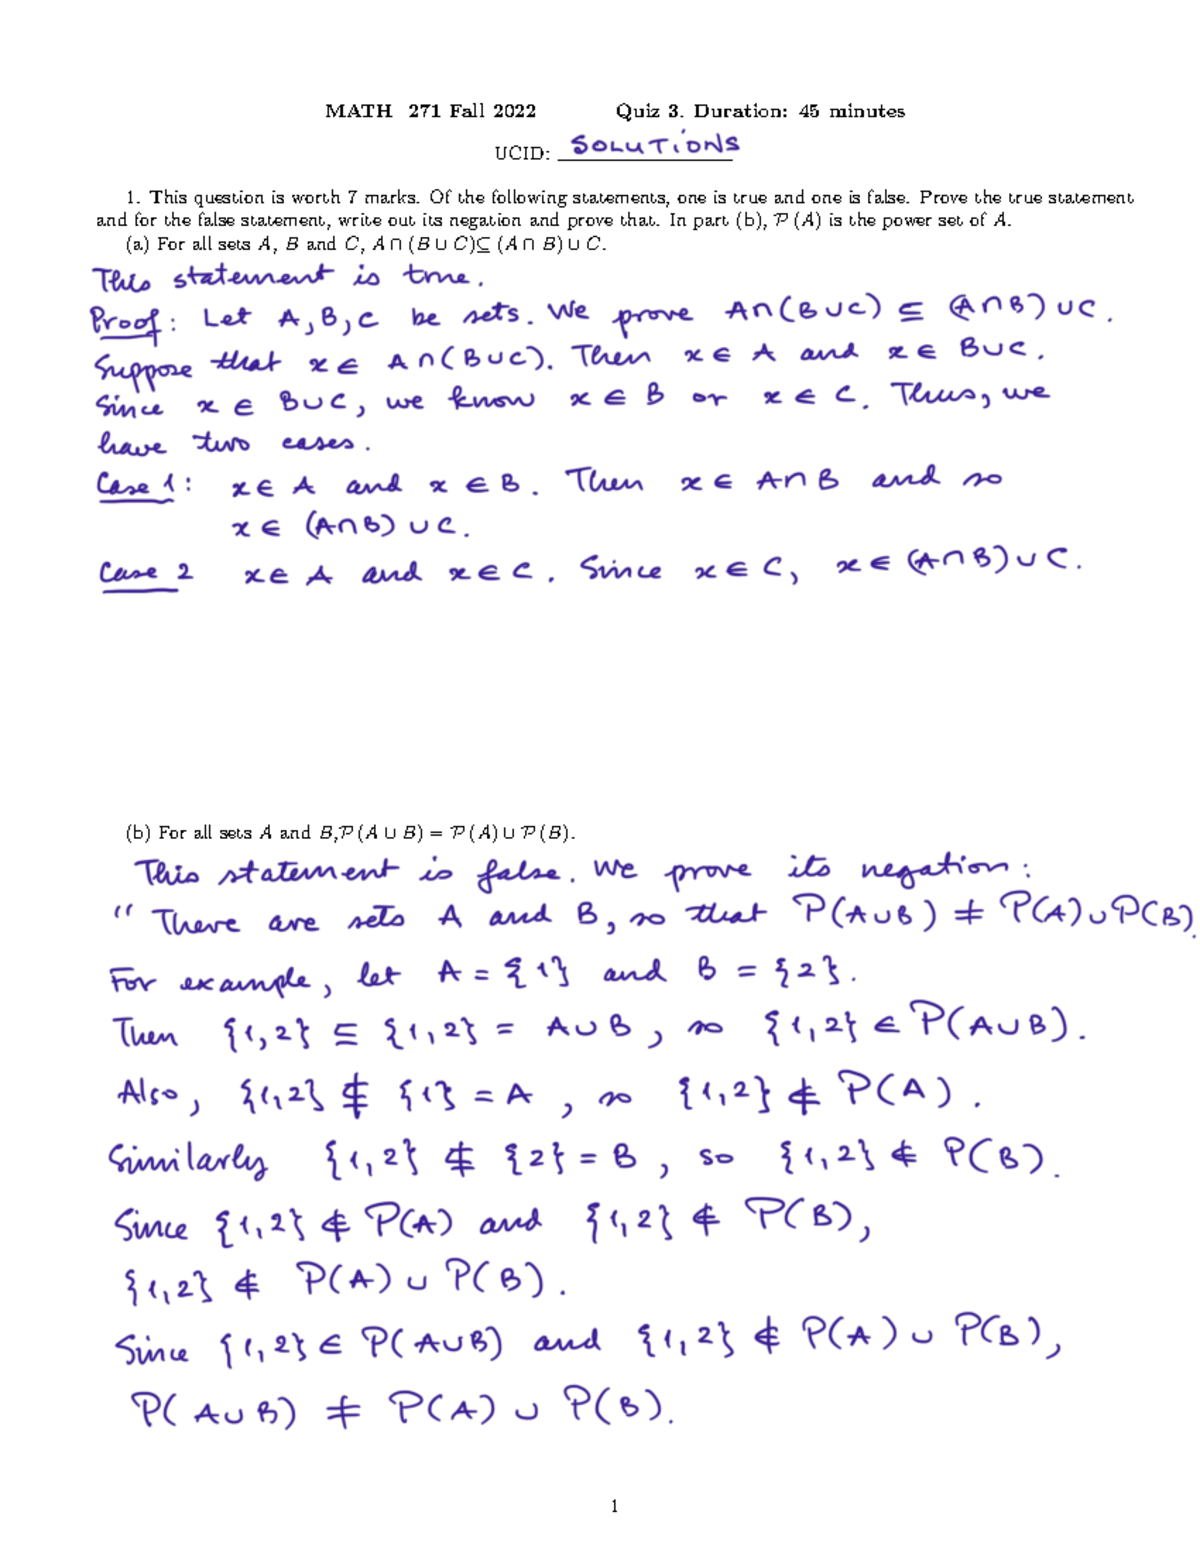 MATH 271 Fall 2022 Quiz 3. Duration: 45 minutes
UCID: SOLUTIONS
1. This question is worth 7 marks. Of the following statements, one is true and one is false. Prove the true statement
and for the false statement, write out its negation and prove that. In part (b), 𝒫 (A) is the power set of A.
(a) For all sets A, B and C, A ∩ (B ∪ C)⊆ (A ∩ B) ∪ C.
This statement is true.
Proof: Let A, B, C be sets. We prove A∩(B∪C) ⊆ (A∩B) ∪C.
Suppose that x ∈ A∩(B∪C). Then x ∈ A and x ∈ B∪C.
Since x ∈ B∪C, we know x ∈ B or x ∈ C. Thus, we
have two cases.
Case 1: x ∈ A and x ∈ B. Then x ∈ A∩B and so
x ∈ (A∩B) ∪C.
Case 2 x ∈ A and x ∈ C. Since x ∈ C, x ∈ (A∩B)∪C.
(b) For all sets A and B,𝒫 (A ∪ B) = 𝒫 (A) ∪ 𝒫 (B).
This statement is false. We prove its negation:
“ There are sets A and B, so that P(A∪B) ≠ P(A)∪P(B).
For example, let A = {1} and B = {2}.
Then {1,2} ⊆ {1,2} = A∪B, so {1,2} ∈ P(A∪B).
Also, {1,2} ⊈ {1} = A, so {1,2} ∉ P(A).
Similarly {1,2} ⊈ {2} = B, so {1,2} ∉ P(B).
Since {1,2} ∉ P(A) and {1,2} ∉ P(B),
{1,2} ∉ P(A) ∪ P(B).
Since {1,2} ∈ P(A∪B) and {1,2} ∉ P(A) ∪ P(B),
P(A∪B) ≠ P(A) ∪ P(B).
1